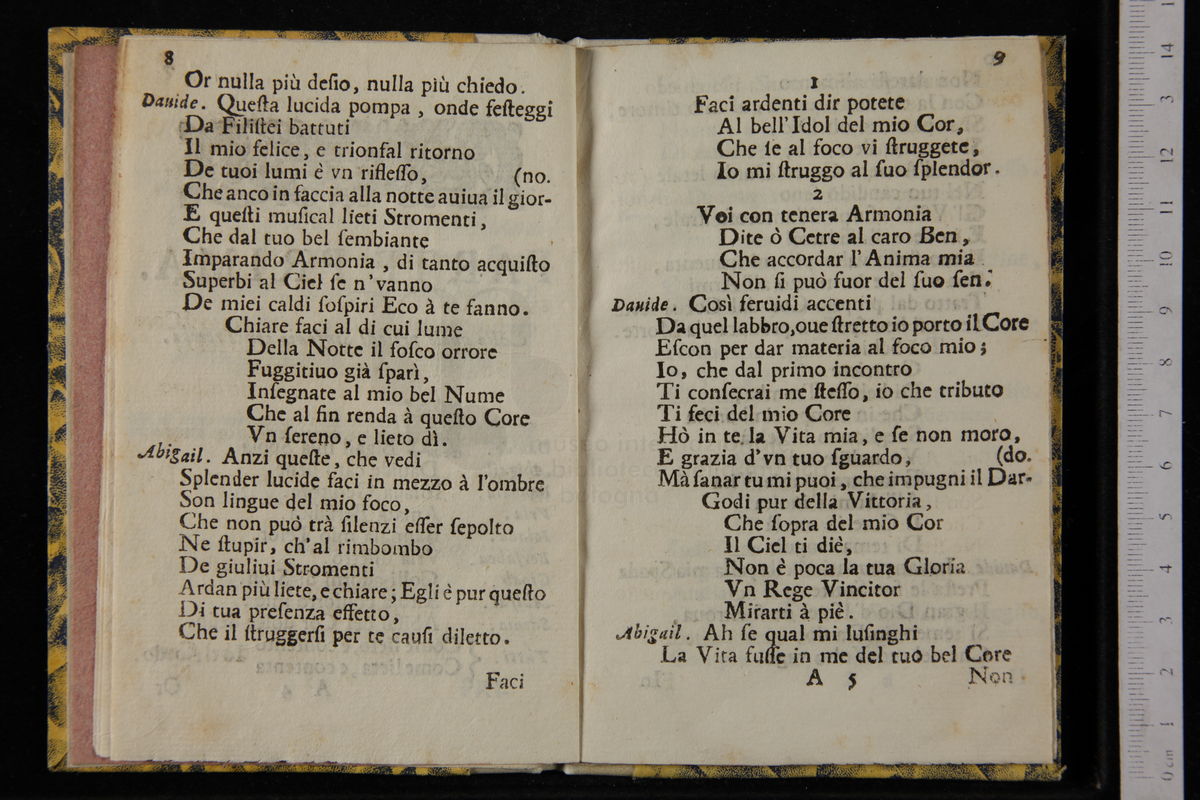 8
Or nulla più deſio, nulla più chiedo.
Dauide. Queſta lucida pompa, onde feſteggi
Da Filiſtei battuti
Il mio felice, e trionfal ritorno
De tuoi lumi è vn rifleſſo, (no.
Che anco in faccia alla notte auiua il gior-
E queſti muſical lieti Stromenti,
Che dal tuo bel ſembiante
Imparando Armonia, di tanto acquiſto
Superbi al Ciel ſe n'vanno
De miei caldi ſoſpiri Eco à te fanno.
Chiare faci al di cui lume
Della Notte il foſco orrore
Fuggitiuo già ſparì,
Inſegnate al mio bel Nume
Che al fin renda à queſto Core
Vn ſereno, e lieto dì.
Abigail. Anzi queſte, che vedi
Splender lucide faci in mezzo à l'ombre
Son lingue del mio foco,
Che non può trà ſilenzi eſſer ſepolto
Ne ſtupir, ch'al rimbombo
De giuliui Stromenti
Ardan più liete, e chiare; Egli è pur queſto
Di tua preſenza effetto,
Che il ſtruggerſi per te cauſi diletto.
Faci
9
1
Faci ardenti dir potete
Al bell'Idol del mio Cor,
Che ſe al foco vi ſtruggete,
Io mi ſtruggo al ſuo ſplendor.
2
Voi con tenera Armonia
Dite ò Cetre al caro Ben,
Che accordar l'Anima mia
Non ſi può fuor del ſuo ſen.
Dauide. Così feruidi accenti
Da quel labbro, oue ſtretto io porto il Core
Eſcon per dar materia al foco mio;
Io, che dal primo incontro
Ti conſecrai me ſteſſo, io che tributo
Ti feci del mio Core
Hò in te la Vita mia, e ſe non moro,
E grazia d'vn tuo ſguardo, (do.
Mà ſanar tu mi puoi, che impugni il Dar-
Godi pur della Vittoria,
Che ſopra del mio Cor
Il Ciel ti diè,
Non è poca la tua Gloria
Vn Rege Vincitor
Mirarti à piè.
Abigail. Ah ſe qual mi luſinghi
La Vita fuſſe in me del tuo bel Core
A 5 Non